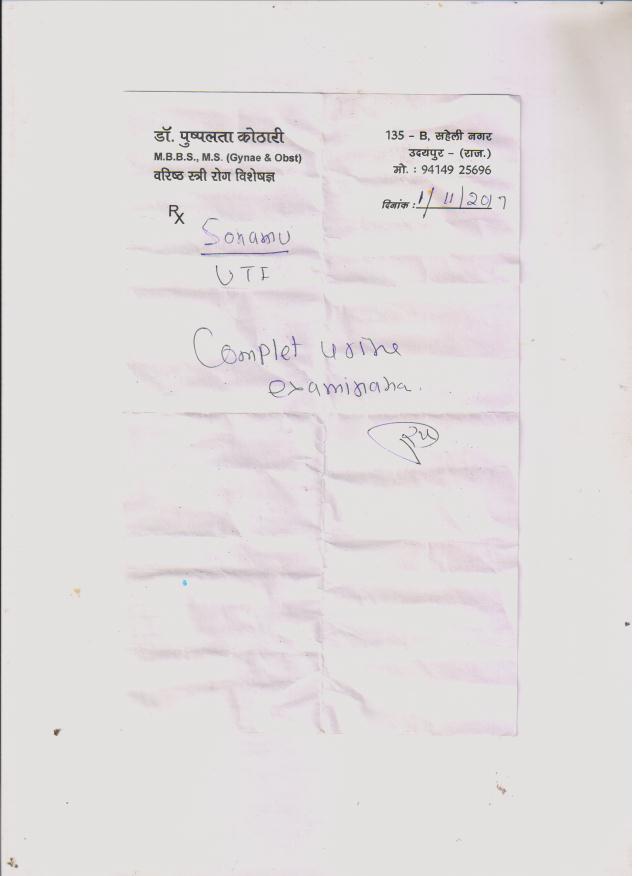 डॉ. पुष्पलता कोठारी
M.B.B.S., M.S. (Gynae & Obst)
वरिष्ठ स्त्री रोग विशेषज्ञ
135 - B, सहेली नगर
उदयपुर - (राज.)
मो. : 94149 25696
दिनांक : 1/11/2017
Rx
Sonamu
UTI
Complet urine
examinana.